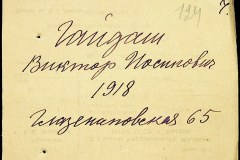 124
7.
Гайдаш
Виктор Иосипович
1918
Глазенаповская 65